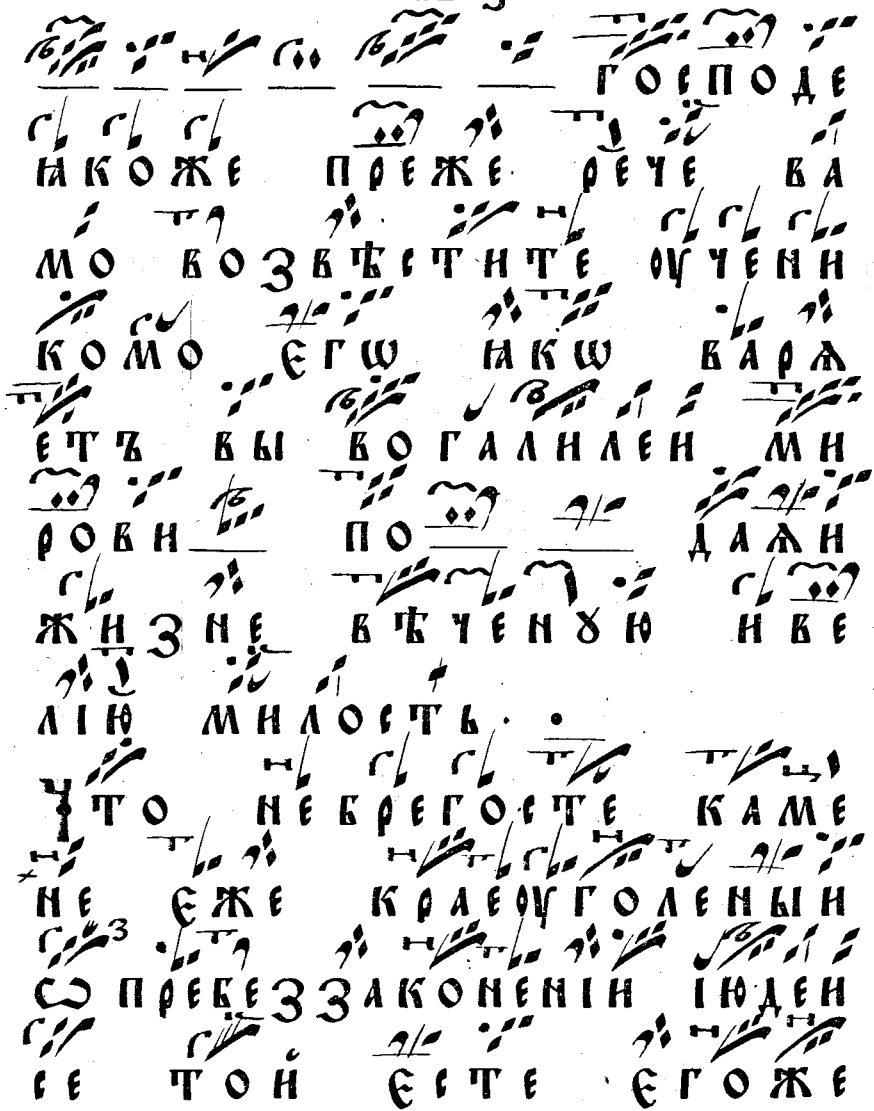 ГОСПОДЕ
ꙖКОЖЕ ПРЕЖЕ РЕЧЕ ВА
МО ВОЗВѢСТИТЕ ОУЧЕНИ
КОМО ЄГѠ ꙖКѠ ВАРѦ
ЕТЪ ВЫ ВОГАЛИЛЕИ МИ
РОВИ ПО ДАѦИ
ЖИЗНЕ ВѢЧЕНꙊЮ ИВЕ
ЛІЮ МИЛОСТЬ.
ЧТО НЕБРЕГОСТЕ КАМЕ
НЕ ЄЖЕ КРАЕОУГОЛЕНЫИ
Ѡ ПРЕБЕЗЗАКОНЕНІИ ІЮДЕИ
СЕ ТОЙ ЄСТЕ ЄГОЖЕ